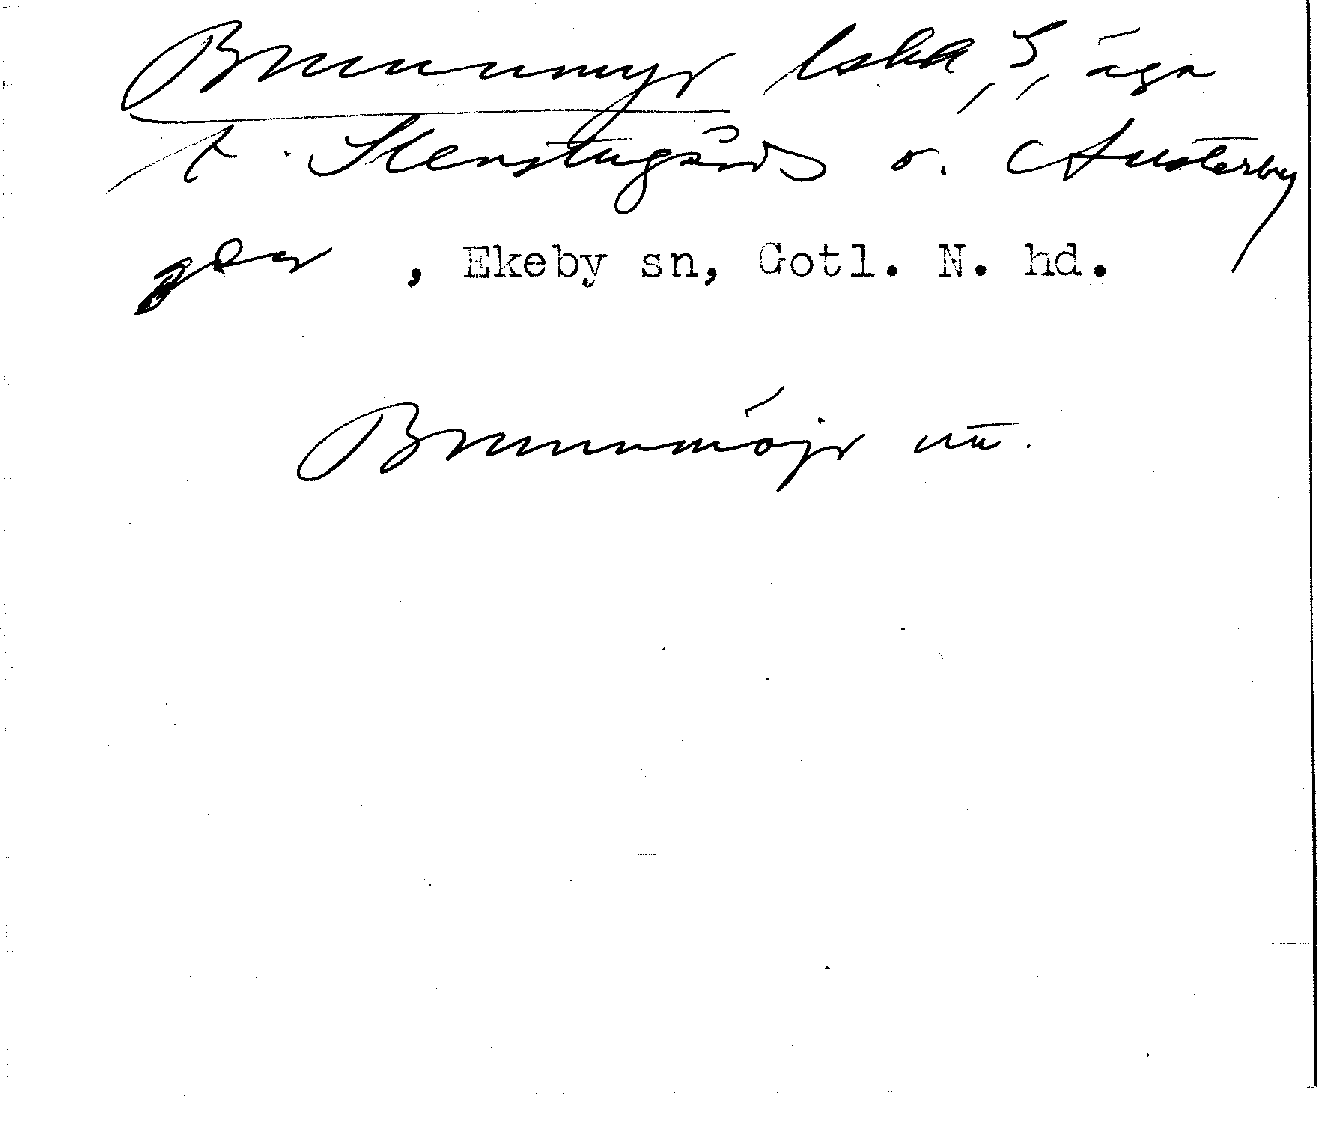 Brunnmyr lska, S, äga
t. Stenstugårds o. Austerby
gdar, Ekeby sn, Gotl. N. hd.
Brunnmöjr